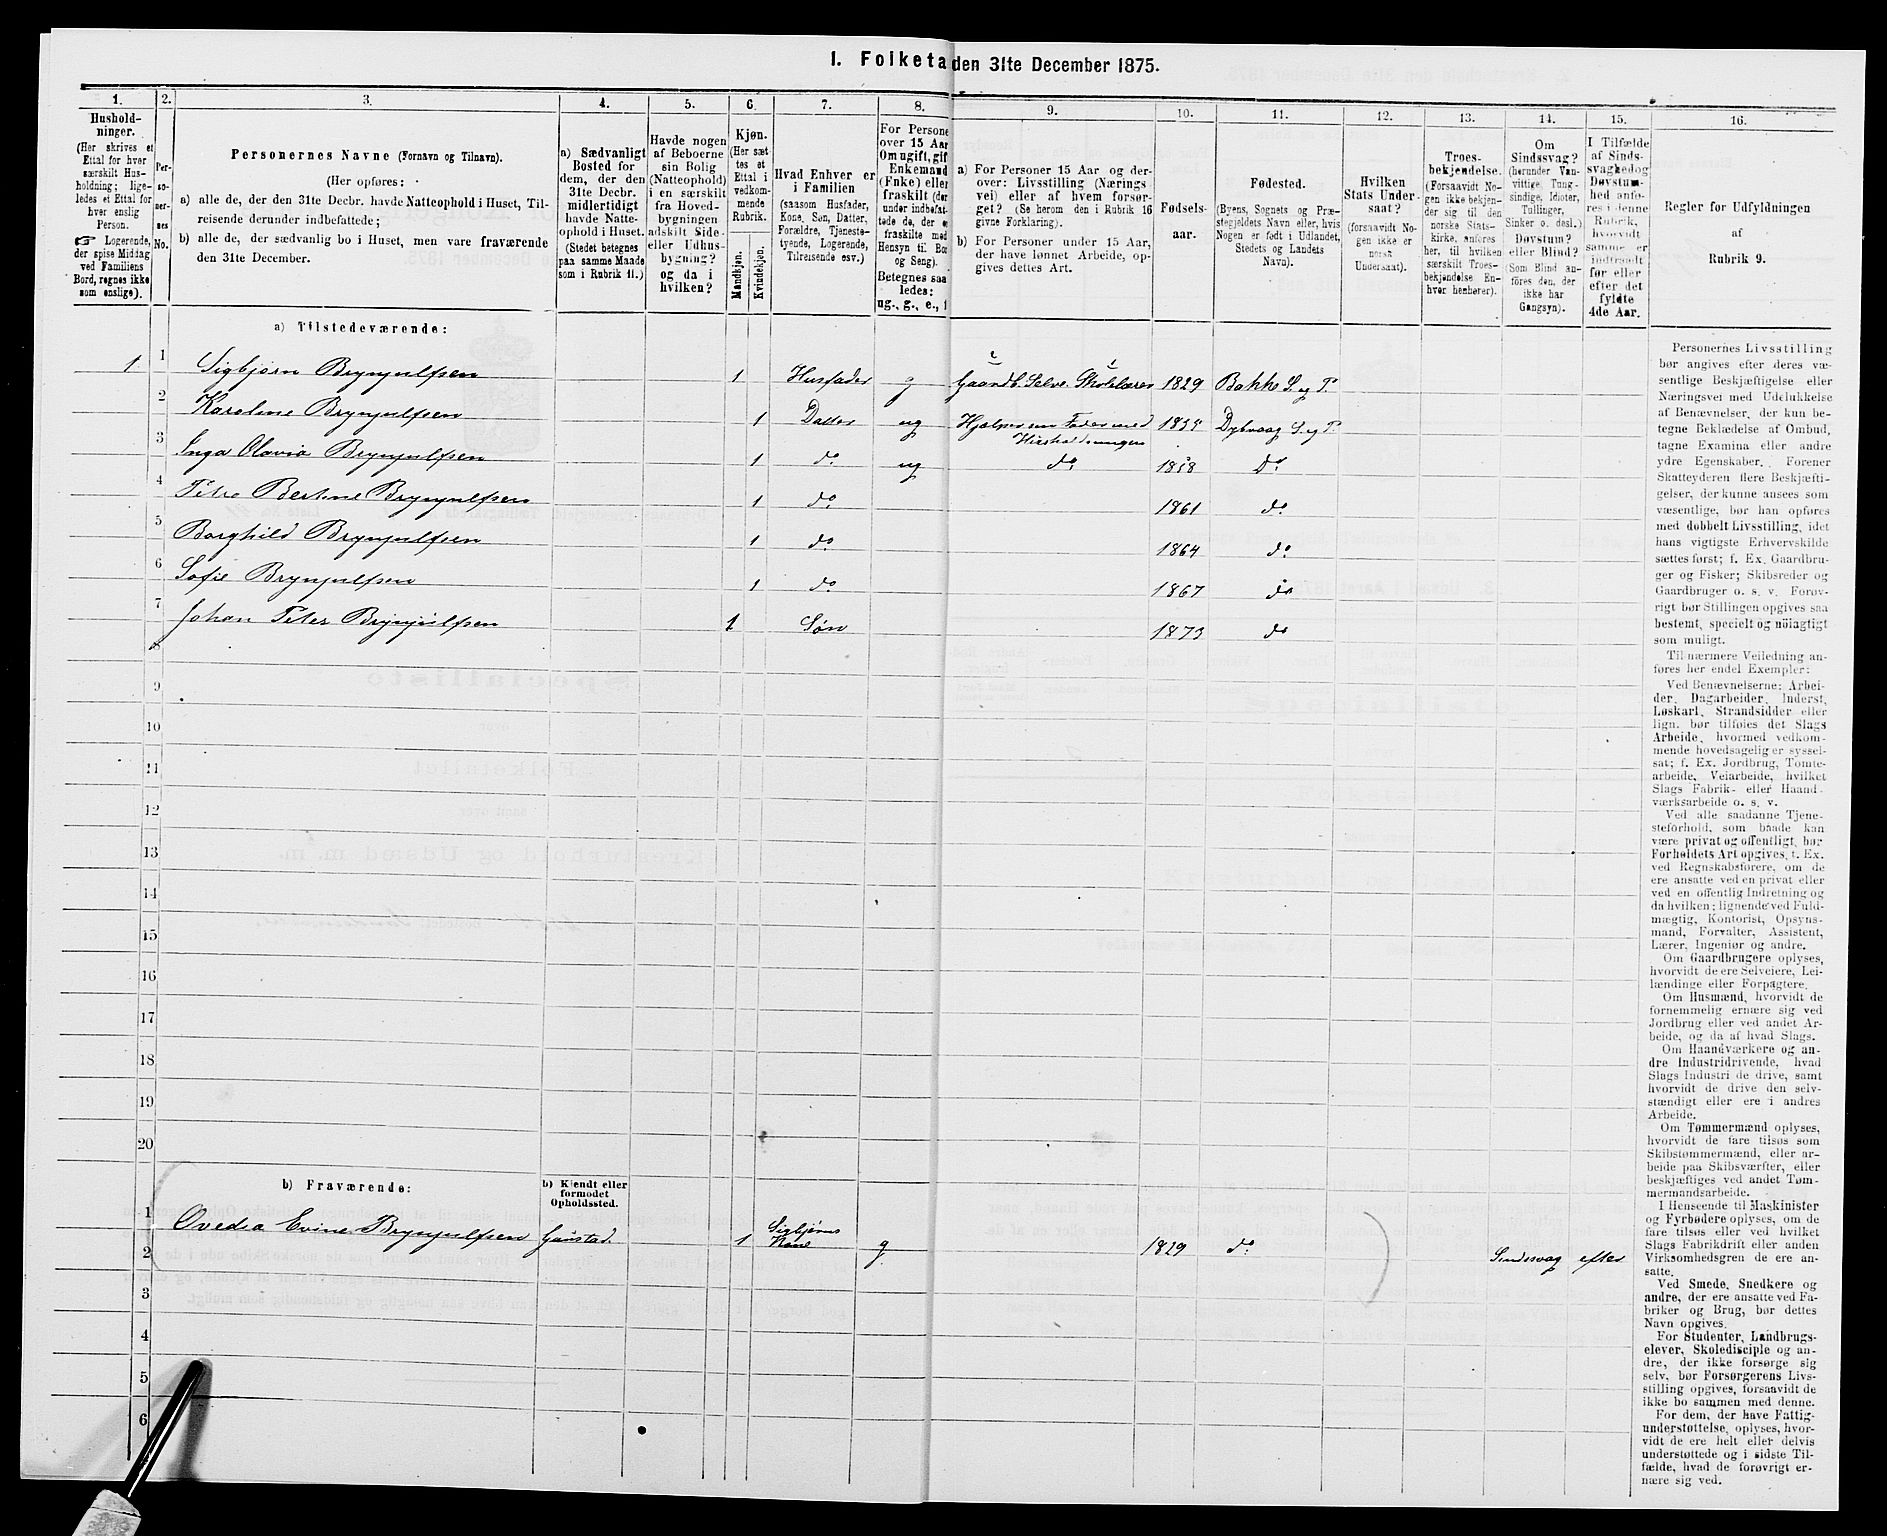 I. Folketa den 31te December 1875.
1.
Hushold-
ninger.
(Her skrives et
Ettal for hver
særskilt Hus-
holdning; lige-
ledes et Ettal for
hver enslig
Person.
☞ Logerende,
der spise Middag
ved Familiens
Bord, regnes ikke
som enslige).
2.
Per-
so-
ner-
nes
No.
3.
Personernes Navne (Fornavn og Tilnavn).
(Her opføres:
a) alle de, der den 31te Decbr. havde Natteophold i Huset, Til-
reisende derunder indbefattede;
b) alle de, der sædvanlig bo i Huset, men vare fraværende
den 31te December.
4.
a) Sædvanligt
Bosted for
dem, der den
31te Decbr.
midlertidigt
havde Natte-
ophold i Huset.
(Stedet betegnes
paa samme Maade
som i Rubrik 11.)
5.
Havde nogen
af Beboerne
sin Bolig
(Natteophold)
i en særskilt
fra Hoved-
bygningen
adskilt Side-
eller Udhus-
bygning?
og da i
hvilken?
6.
Kjøn.
(Her sæt-
tes et
Ettal i
vedkom-
mende
Rubrik.
Mandkjøn.
Kvindekjøn.
7.
Hvad Enhver er
i Familien
(saasom Husfader,
Kone, Søn, Datter,
Forældre, Tjeneste-
tyende, Logerende,
Tilreisende osv.)
8.
For Persone
over 15 Aar
Om ugift, gif
Enkemand
(Enke) elle
fraskilt (der
under indbefat-
tede de, der e
fraskilte med
Hensyn til Bo
og Seng).
Betegnes saa
ledes:
ug., g., e., f
9.
a) For Personer 15 Aar og der-
over: Livsstilling (Nærings
vei) eller af hvem forsør-
get? (Se herom den i Rubrik 16
givne Forklaring).
b) For Personer under 15 Aar,
der have lønnet Arbeide, op-
gives dettes Art.
10.
Fødsels-
aar.
11.
Fødested.
(Byens, Sognets og Præ-
stegjeldets Navn eller, hvis
Nogen er født i Udlandet,
Stedets og Landets
Navn).
12.
Hvilken
Stats Under-
saat?
(forsaavidt No-
gen ikke er
norsk
Undersaat).
13.
Troes-
bekjendelse.
(Forsaavidt No-
gen ikke bekjen-
der sig til den
norske Stats-
kirke, anføres
her, til hvilken
særskilt Troes-
bekjendelse En-
hver henhører).
14.
Om
Sindssvag?
(herunder Van-
vittige, Tung-
sindige, Idioter,
Tullinger,
Sinker o. desl.)
Døvstum?
eller Blind?
(Som Blind an-
føres den, der
ikke har
Gangsyn).
15.
I Tilfælde
af Sinds-
svaghed og
Døvstum-
hed anfø-
res i denne
Rubrik,
hvorvidt
samme er
indtraadt
før eller
efter det
fyldte
4de Aar.
16.
Regler for Udfyldningen
af
Rubrik 9.
a) Tilstedeværende:
1 1 Sigbjørn Brynjulfsen 1 Husfader g Gaardb. Selve. Skolelærer 1829 Bakke S. og P.
2 Karoline Brynjulfsen 1 Datter ug Hjælper sin Fader med Husholdningen 1855 Dybvaag S. og P.
3 Inga Olavia Brynjulfsen 1 do ug do 1858 Do
4 Petra Bertine Brynjulfsen 1 do 1861 do
5 Borghild Brynjulfsen 1 do 1864 do
6 Sofie Brynjulfsen 1 do 1867 do
7 Johan Peter Brynjulfsen 1 Søn 1873 do
8
9
10
11
12
13
14
15
16
17
18
19
20
b) Fraværende:
b) Kjendt eller
formodet
Opholdssted.
1 Ovedia Evine Brynjulfsen Gaustad. 1 Sigbjørns Kone g. 1829 do Sindssvag efter
2
3
4
5
6
Personernes Livsstilling
bør angives efter deres væ-
sentlige Beskjæftigelse eller
Næringsvei med Udelukkelse
af Benævnelser, der kun be-
tegne Beklædelse af Ombud,
tagne Examina eller andre
ydre Egenskaber. Forener
Skatteyderen flere Beskjæfti-
gelser, der kunne ansees som
væsentlige, bør han opføres
med dobbelt Livsstilling, idet
hans vigtigste Erhvervskilde
sættes først; f. Ex. Gaardbru-
ger og Fisker; Skibsreder og
Gaardbruger o. s. v. Forøv-
rigt bør Stillingen opgives saa
bestemt, specielt og nöiagtigt
som muligt.
Til nærmere Veiledning an-
føres her endel Exempler:
Ved Benævnelserne: Arbei-
der, Dagarbeider, Inderst,
Løskarl, Strandsidder eller
lign. bør tilføies det Slags
Arbeide, hvormed vedkom-
mende hovedsagelig er syssel-
sat; f. Ex. Jordbrug, Tomte-
arbeide, Veiarbeide, hvilket
Slags Fabrik- eller Haand-
værksarbeide o. s. v.
Ved alle saadanne Tjene-
steforhold, som baade kan
være privat og offentligt, bør
Forholdets Art opgives, t. Ex.
ved Regnskabsførere, om de
ere ansatte ved en privat eller
ved en offentlig Indretning og
da hvilken; lignende ved Fuld-
mægtig, Kontorist, Opsyns-
mand, Forvalter, Assistent,
Lærer, Ingeniør og andre.
Om Gaardbrugere oplyses,
hvorvidt de ere Selveiere, Lei-
lændinge eller Forpagtere.
Om Husmænd, hvorvidt de
fornemmelig ernære sig ved
Jordbrug eller ved andet Ar-
beide, og da af hvad Slags.
Om Haandværkere og an-
dre Industridrivende, hvad
Slags Industri de drive, samt
hvorvidt de drive den selv-
stændigt eller ere i andres
Arbeide.
Om Tømmermænd oplyses,
hvorvidt de fare tilsøs som
Skibstømmermænd, eller ar-
beide paa Skibsværfter, eller
beskjæftiges ved andet Tøm-
mermandsarbeide.
I Henseende til Maskinister
og Fyrbødere oplyses, om de
fare tilsøs eller ved hvilket
Slags Fabrikdrift eller anden
Virksomhedsgren de ere an-
satte.
Ved Smede, Snedkere og
andre, der ere ansatte ved Fa-
briker og Brug, bør dettes
Navn opgives.
For Studenter, Landbrugs-
elever, Skoledisciple og an-
dre, der ikke forsørge sig
selv, bør Forsørgerens Livs-
stilling opgives, forsaavidt de
ikke bo sammen med denne.
For dem, der have Fattig-
understøttelse, oplyses, hvor-
vidt de ere helt eller delvis
understøttede og i sidste Til-
fælde, hvad de forøvrigt er-
nære sig ved.